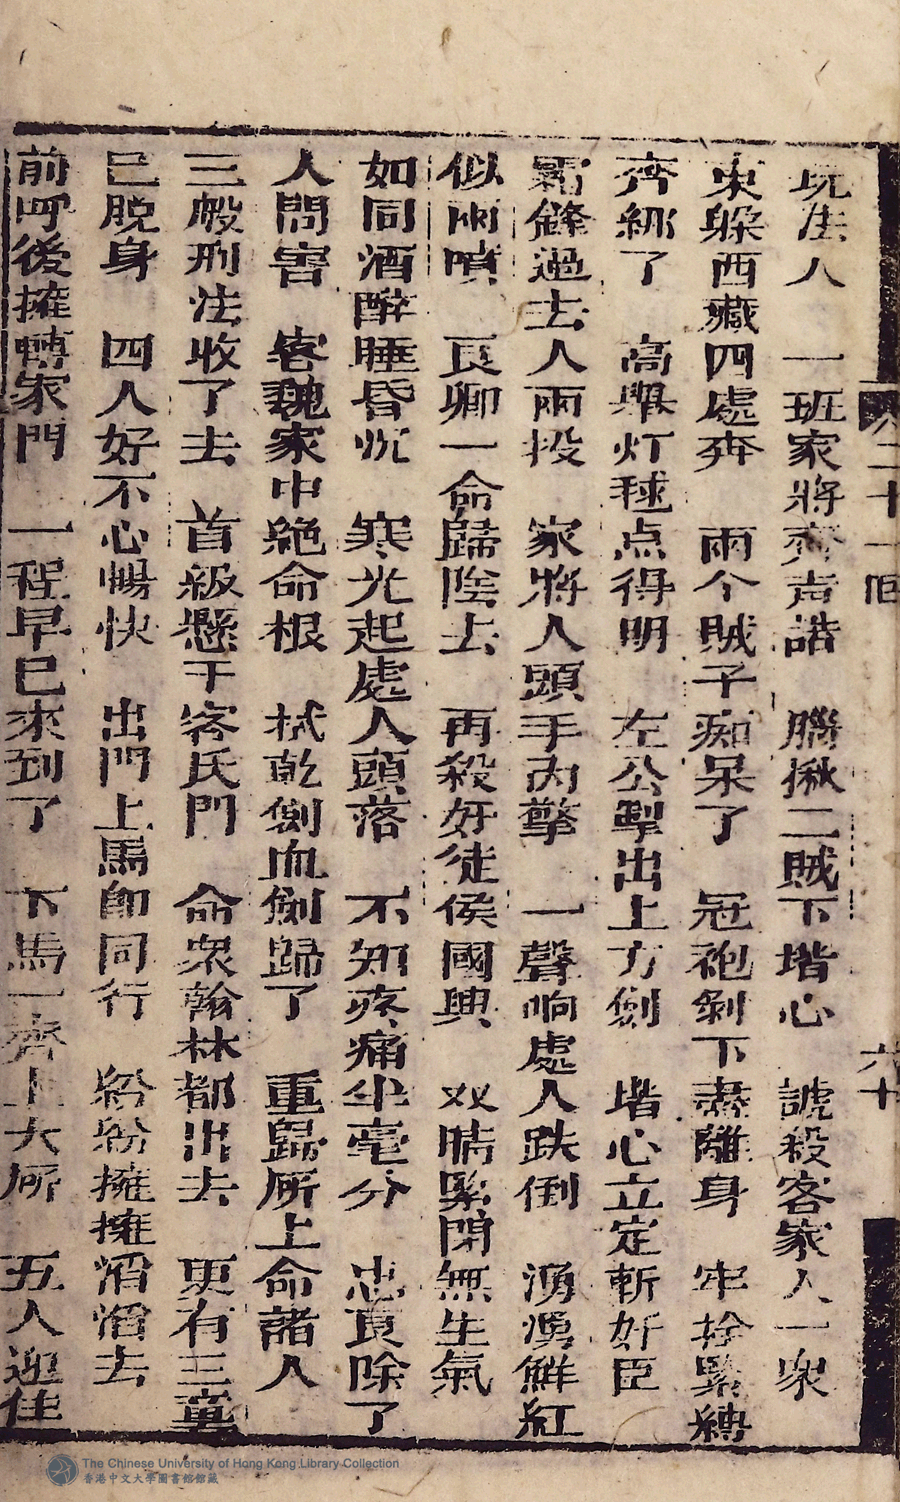 二十一回 六十
坑生人 一班家將齊声諾 腦揪二賊下堦心 諕殺客家人一衆
東躱西藏四處奔 兩个賊子痴呆了 冠袍剝下盡離身 牢拴緊縛
齊綁了 高舉灯毬点得明 左公掣出上方劍 堦心立定斬奸臣
霜鋒過去人兩投 家將人頭手內擎 一聲响處人跌倒 湧湧鮮紅
似雨噴 艮卿一命歸陰去 再殺奸徒侯國興 双睛緊閉無生氣
如同酒醉睡昏沉 寒光起處人頭落 不知疼痛半毫分 忠良除了
人間害 客魏家中絶命根 拭乾劍血劍歸了 重歸厛上命諸人
三般刑法收了去 首級懸干客氏門 命衆翰林都出去 更有三童
已脫身 四人好不心暢快 出門上馬卽同行 紛紛擁擁滔滔去
前呼後擁轉家門 一程早已來到了 下馬一齊上大厛 五人迎住
The Chinese University of Hong Kong Library Collection
香港中文大學圖書館館藏